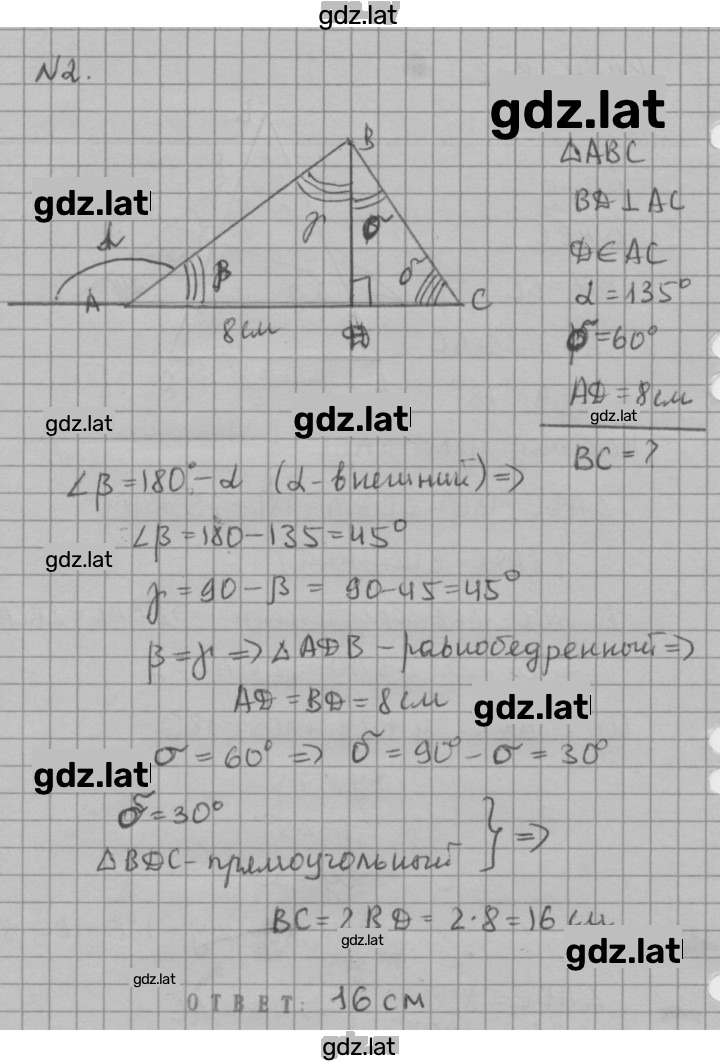 gdz.lat
N2.
gdz.lat
B
△ABC
gdz.lat
BD ⊥ AC
α
γ
σ
D ∈ AC
β
δ
A
C
α = 135°
8 см
D
σ = 60°
AD = 8 см
gdz.lat
gdz.lat
gdz.lat
BC = ?
∠β = 180° - α (α - внешний) =>
∠β = 180 - 135 = 45°
gdz.lat
γ = 90 - β = 90 - 45 = 45°
β = γ => △ADB - равнобедренный =>
AD = BD = 8 см
gdz.lat
σ = 60° => δ = 90° - σ = 30°
gdz.lat
δ = 30°
△BDC - прямоугольный } =>
BC = 2BD = 2·8 = 16 см
gdz.lat
gdz.lat
gdz.lat
ОТВЕТ: 16 см
gdz.lat